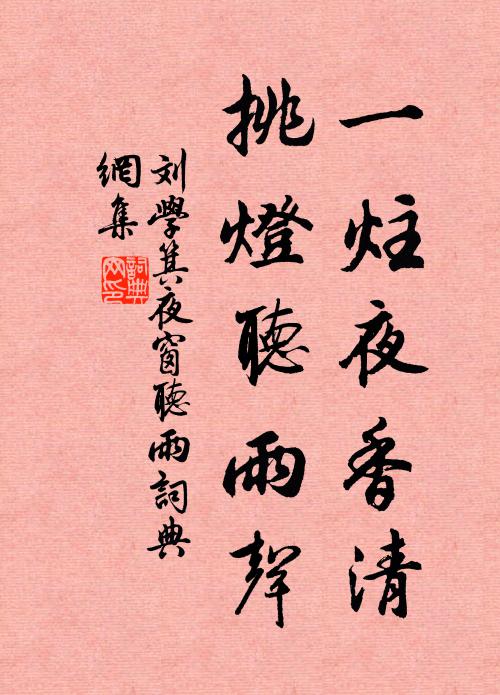 一炷夜香清
挑燈聽雨聲
刘學箕夜窗聽雨詞典
網集
詞典
网印